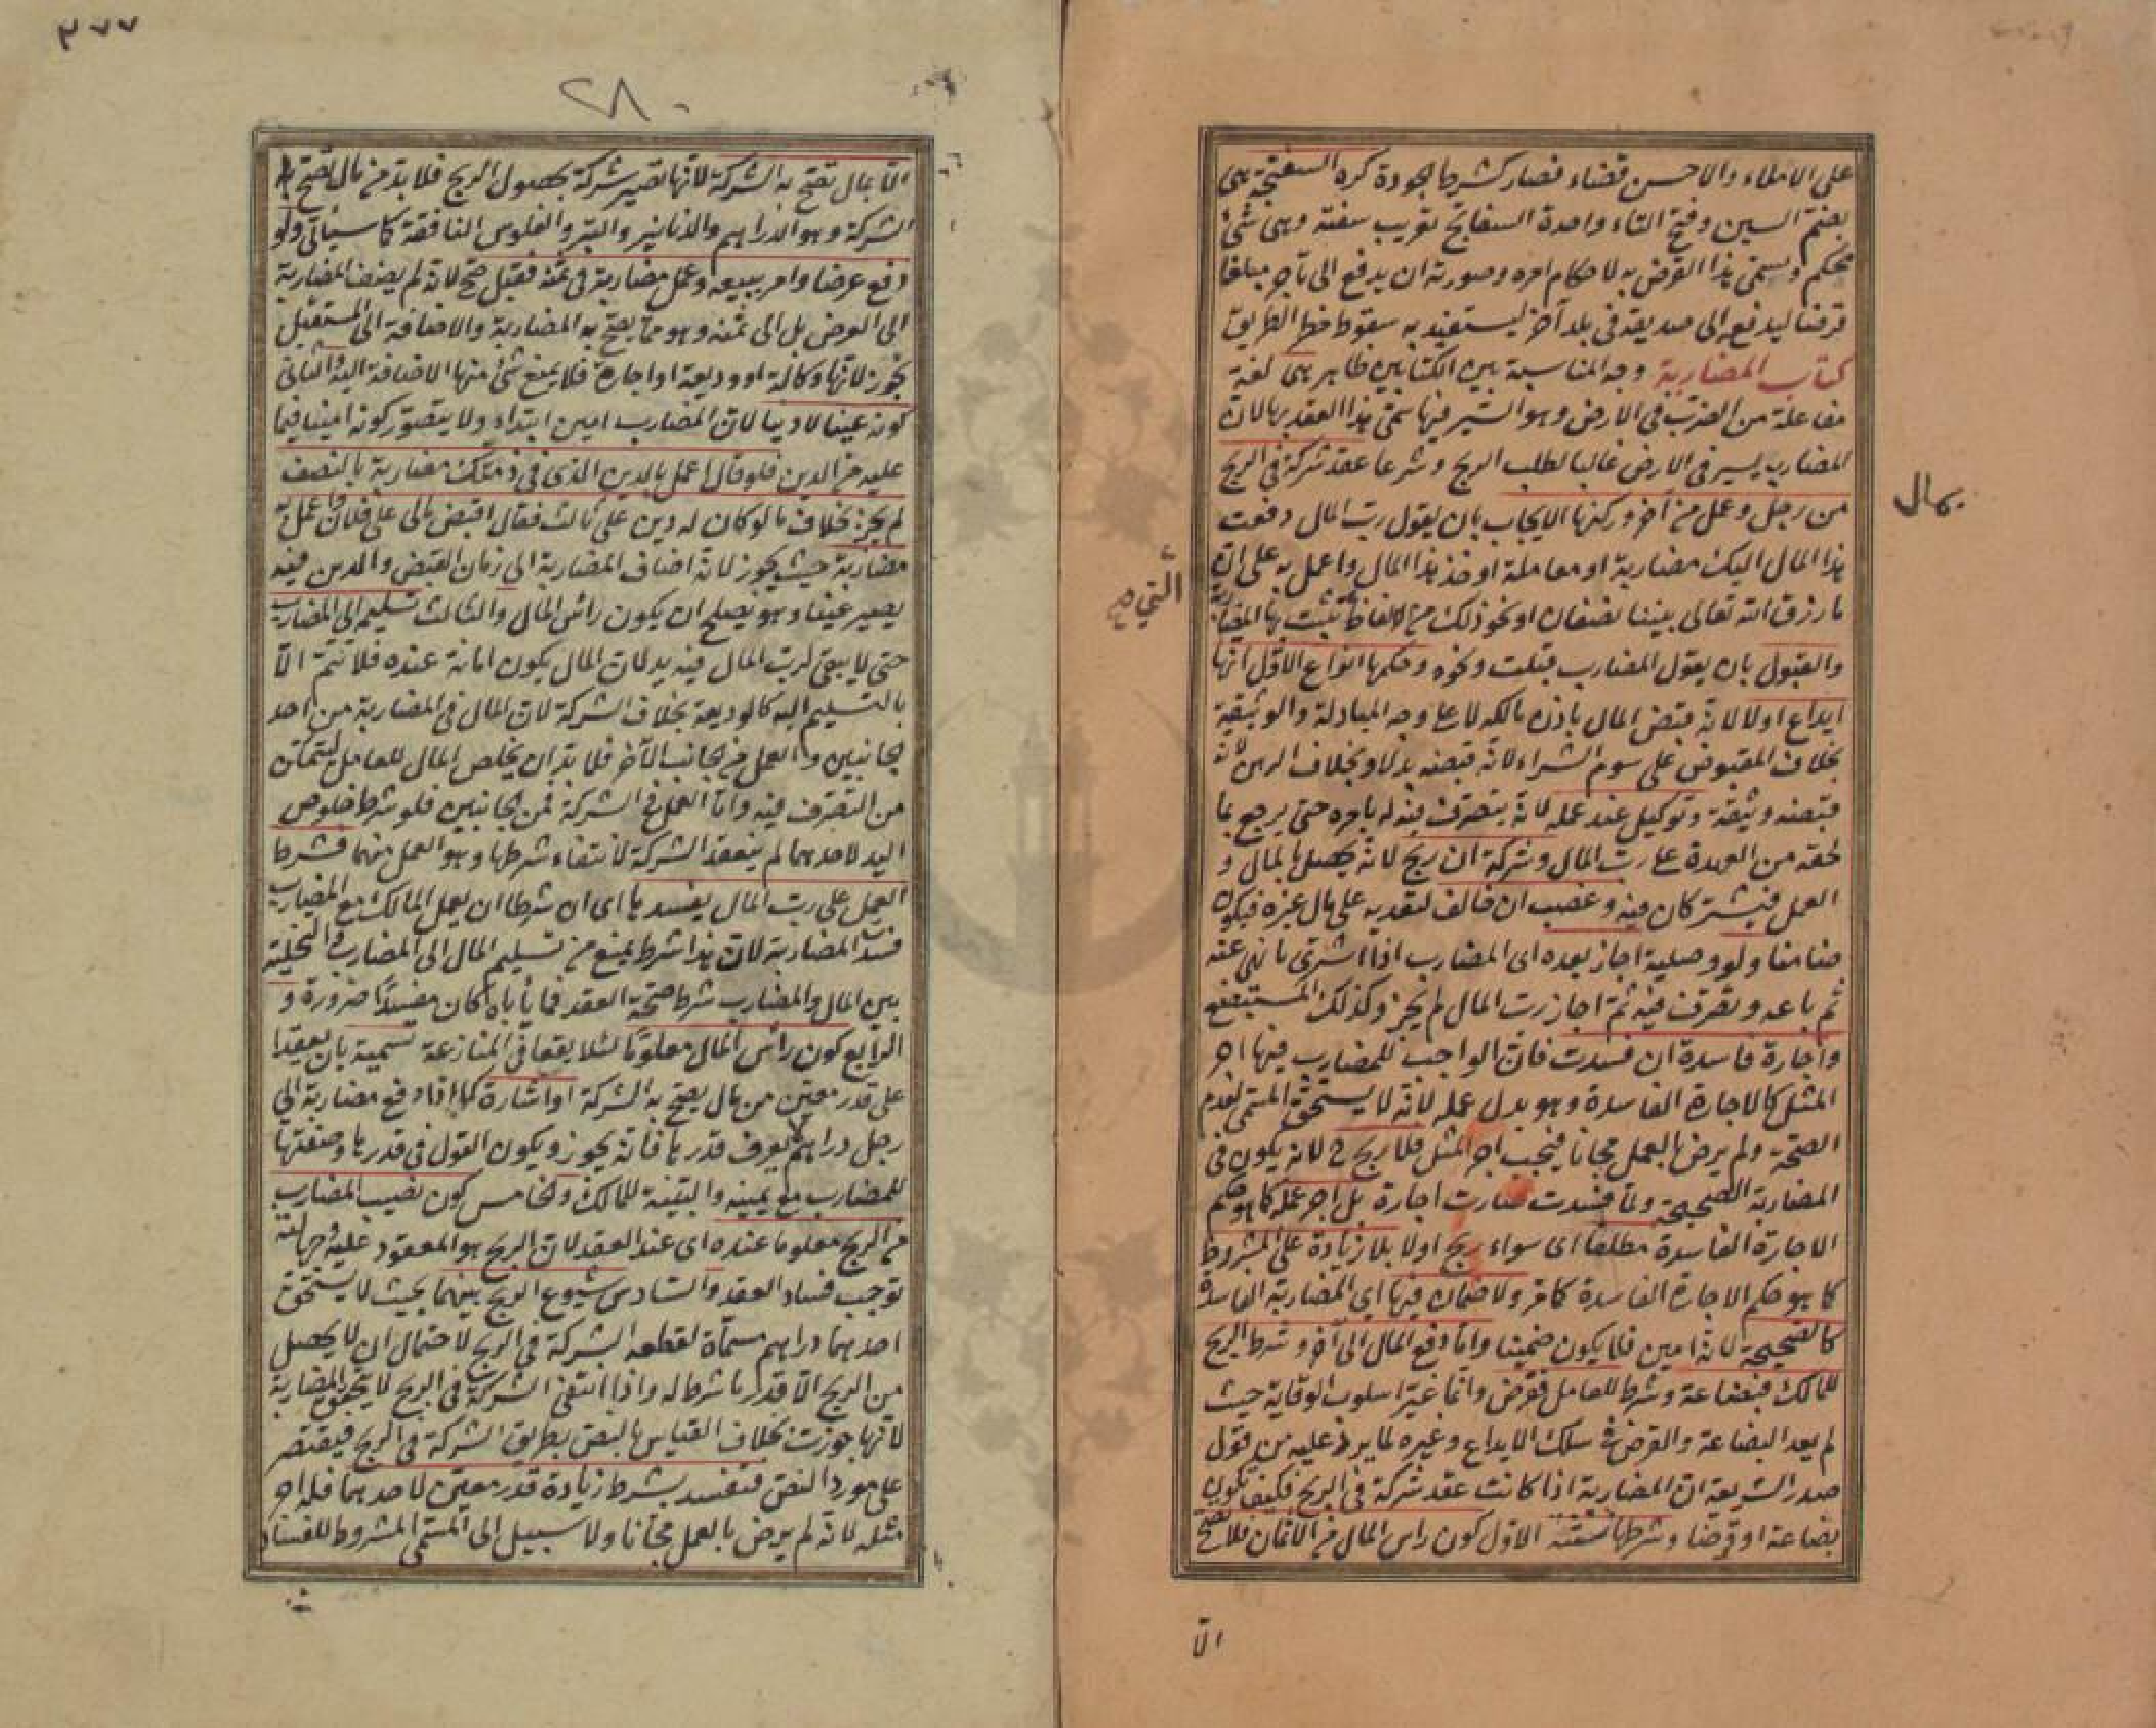 على الاملاء والاحسن قضاء فصار كشرط الجودة كره السفتجة هى
بضم السين وفتح التاء واحدة السفاتج تعريب سفته وهى شئ
محكم ويسمى هذا القرض به لاحكام امره وصورته ان يدفع الى تاجر مبلغا
قرضا ليدفعه الى صديقه فى بلد آخر ليستفيد به سقوط خطر الطريق
كتاب المضاربة وجه المناسبة بين الكتابين ظاهر هى لغة
مفاعلة من الضرب فى الارض وهو السير فيها سمّى هذا العقد بها لان
المضارب يسير فى الارض غالبا لطلب الربح وشرعا عقد شركة فى الربح
بمال
من رجل وعمل من آخر وركنها الايجاب بان يقول رب المال دفعت
هذا المال اليك مضاربة او معاملة او خذ هذا المال واعمل به على ان
ما رزق الله تعالى بيننا نصفان او نحو ذلك من الالفاظ تثبت بها المضاربة
التي صح
والقبول بان يقول المضارب قبلت ونحوه وحكمها انواع الاول انها
ايداع اولا لانه قبض المال باذن مالكه لا على وجه المبادلة والوثيقة
بخلاف المقبوض على سوم الشراء لانه قبضه بدلا وبخلاف الرهن لانه
قبضه وثيقة وتوكيل عند عمله لانه يتصرف فيه له بامره حتى يرجع بما
لحقه من العهدة على رب المال وشركة ان ربح لانه يحصل بالمال و
العمل فيشتركان فيه وغصب ان خالف لتعديه على مال غيره فيكون
ضامنا ولو وصلية اجاز بعده اى المضارب اذا اشترى ما نهى عنه
ثم باعه وتصرف فيه ثم اجاز رب المال لم يجز وكذلك المستبضع
واجارة فاسدة ان فسدت فان الواجب للمضارب فيها اجر
المثل كالاجارة الفاسدة وهو بدل عمله لانه لا يستحق المسمى لعدم
الصحة ولم يرض بالعمل مجانا فيجب اجر المثل فلا ربح ح لانه يكون فى
المضاربة الصحيحة ولما فسدت صارت اجارة بل اجر عمله كما هو حكم
الاجارة الفاسدة مطلقا اى سواء ربح اولا بلا زيادة على المشروط
كما هو حكم الاجارة الفاسدة كما مر ولا ضمان فيها اى المضاربة الفاسدة
كالصحيحة لانه امين فلا يكون ضمينا واما دفع المال الى آخر وشرط الربح
للمالك فبضاعة وشرط للعامل فقرض وانما غير اسلوب الوقاية حيث
لم يعد البضاعة والقرض فى سلك الايداع وغيره لما يرد عليه من قول
صدر الشريعة ان المضاربة اذا كانت عقد شركة فى الربح فكيف يكون
بضاعة او قرضا وشرطها ستة الاول كون راس المال من الاثمان فلا تصح
الا
٣٧٧
٢٨٠
الا بمال تصح به الشركة لانها تصير شركة بحصول الربح فلا بد من مال تصح به
الشركة وهو الدراهم والدنانير والتبر والفلوس النافقة كما سيأتى ولو
دفع عرضا وامر ببيعه وعمل مضاربة فى ثمنه فقبل صح لانه لم يضف المضاربة
الى العرض بل الى ثمنه وهو مما يصح به المضاربة والاضافة الى المستقبل
تجوز لانها وكالة او وديعة او اجارة فلا يمنع شئ منها الاضافة اليه والثانى
كونه عينا لا دينا لان المضارب امين ابتداء ولا يتصور كونه امينا فيما
عليه من الدين فلو قال اعمل بالدين الذى فى ذمتك مضاربة بالنصف
لم يجز بخلاف ما لو كان له دين على ثالث فقال اقبض مالى على فلان واعمل به
مضاربة حيث يجوز لانه اضاف المضاربة الى زمان القبض والدين فيه
يصير عينا وهو يصلح ان يكون راس المال والثالث تسليمه الى المضارب
حتى لا يبقى لرب المال فيه يد لان المال يكون امانة عنده فلا تتم الا
بالتسليم اليه كالوديعة بخلاف الشركة لان المال فى المضاربة من احد
الجانبين والعمل من الجانب الآخر فلا بد ان يخلص المال للعامل ليتمكن
من التصرف فيه واما العمل فى الشركة فمن الجانبين فلو شرط خلوص
اليد لاحدهما لم ينعقد الشركة لانتفاء شرطها وهو العمل منهما فشرط
العمل على رب المال يفسدها اى ان شرطا ان يعمل المالك مع المضارب
فسد المضاربة لان هذا شرط يمنع من تسليم المال الى المضارب والتخلية
بين المال والمضارب شرط صحة العقد فما يأباه كان مفسدا ضرورة و
الرابع كون راس المال معلوما لئلا يقعا فى المنازعة تسمية بان يعقدا
على قدر معين من مال يصح به الشركة او اشارة كما اذا دفع مضاربة الى
رجل دراهم لا يعرف قدرها فانه يجوز ويكون القول فى قدرها وصفتها
للمضارب مع يمينه والبينة للمالك والخامس كون نصيب المضارب
من الربح معلوما عنده اى عند العقد لان الربح هو المعقود عليه وجهالته
توجب فساد العقد والسادس شيوع الربح بينهما بحيث لا يستحق
احدهما دراهم مسماة لقطعه الشركة فى الربح لاحتمال ان لا يحصل
من الربح الا قدر ما شرط له واذا انتفى الشركة فى الربح لا يتحقق المضاربة
لانها جوزت بخلاف القياس بالنص بطريق الشركة فى الربح فيقتصر
على مورد النص فتفسد بشرط زيادة قدر معين لاحدهما فله اجر
مثله لانه لم يرض بالعمل مجانا ولا سبيل الى المسمى المشروط للفساد